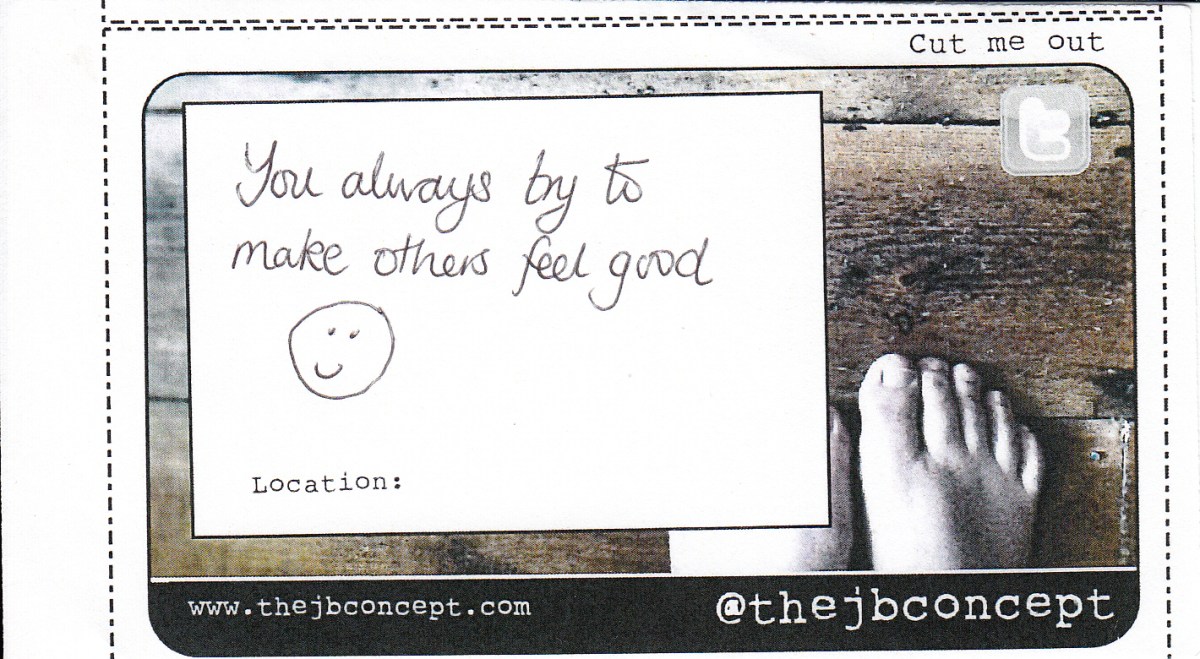 Cut me out
You always try to
make others feel good
Location:
www.thejbconcept.com
@thejbconcept